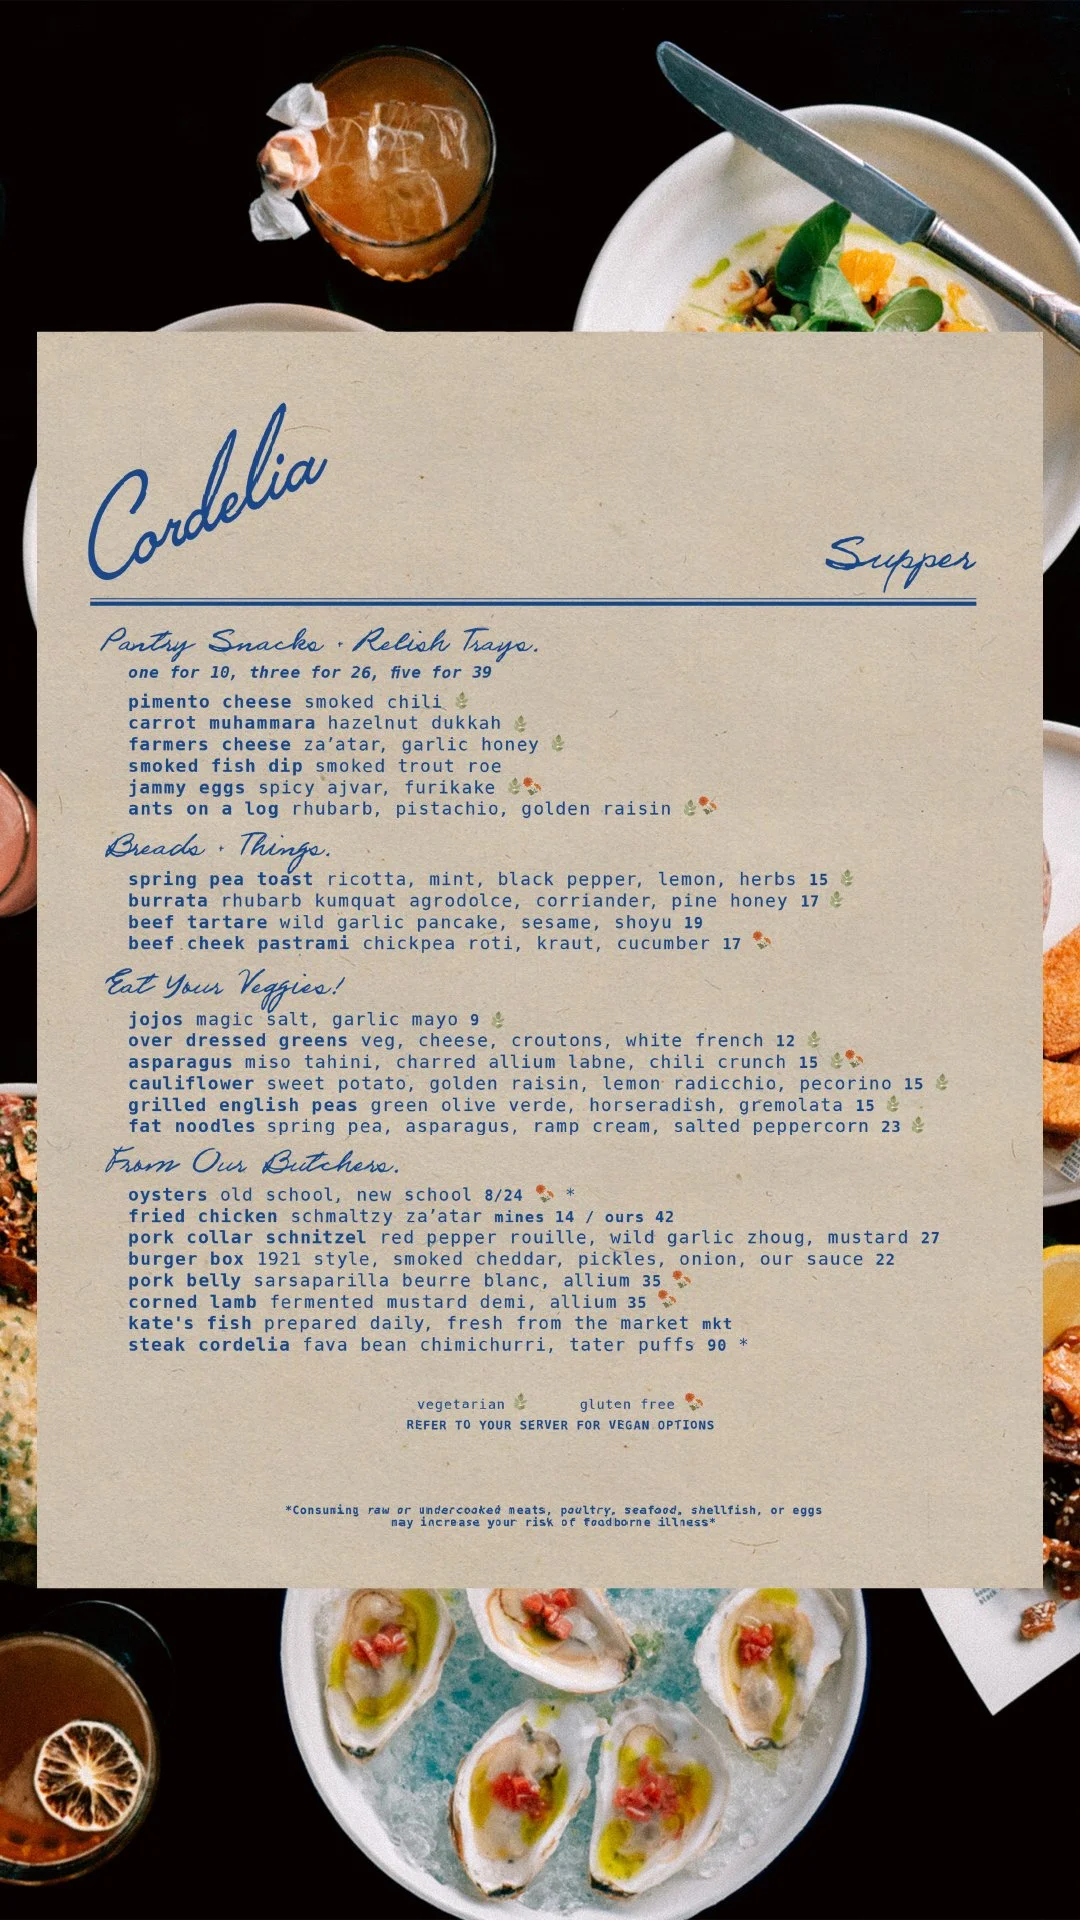 Cordelia
Supper
Pantry Snacks + Relish Trays.
one for 10, three for 26, five for 39
pimento cheese smoked chili
carrot muhammara hazelnut dukkah
farmers cheese za’atar, garlic honey
smoked fish dip smoked trout roe
jammy eggs spicy ajvar, furikake
ants on a log rhubarb, pistachio, golden raisin
Breads + Things.
spring pea toast ricotta, mint, black pepper, lemon, herbs 15
burrata rhubarb kumquat agrodolce, corriander, pine honey 17
beef tartare wild garlic pancake, sesame, shoyu 19
beef cheek pastrami chickpea roti, kraut, cucumber 17
Eat Your Veggies!
jojos magic salt, garlic mayo 9
over dressed greens veg, cheese, croutons, white french 12
asparagus miso tahini, charred allium labne, chili crunch 15
cauliflower sweet potato, golden raisin, lemon radicchio, pecorino 15
grilled english peas green olive verde, horseradish, gremolata 15
fat noodles spring pea, asparagus, ramp cream, salted peppercorn 23
From Our Butchers.
oysters old school, new school 8/24 *
fried chicken schmaltzy za’atar mines 14 / ours 42
pork collar schnitzel red pepper rouille, wild garlic zhoug, mustard 27
burger box 1921 style, smoked cheddar, pickles, onion, our sauce 22
pork belly sarsaparilla beurre blanc, allium 35
corned lamb fermented mustard demi, allium 35
kate's fish prepared daily, fresh from the market mkt
steak cordelia fava bean chimichurri, tater puffs 90 *
vegetarian gluten free
REFER TO YOUR SERVER FOR VEGAN OPTIONS
*Consuming raw or undercooked meats, poultry, seafood, shellfish, or eggs
may increase your risk of foodborne illness*